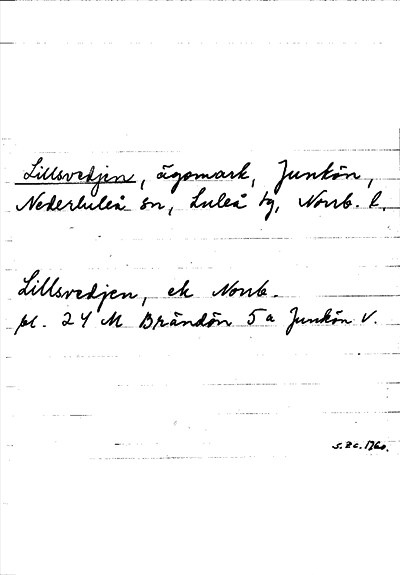 Lillsvedjen, ägomark, Junkön,
Nederluleå sn, Luleå tg, Norrb. l.
Lillsvedjen, ek Norrb.
pl. 24 M Brändön 5a Junkön V.